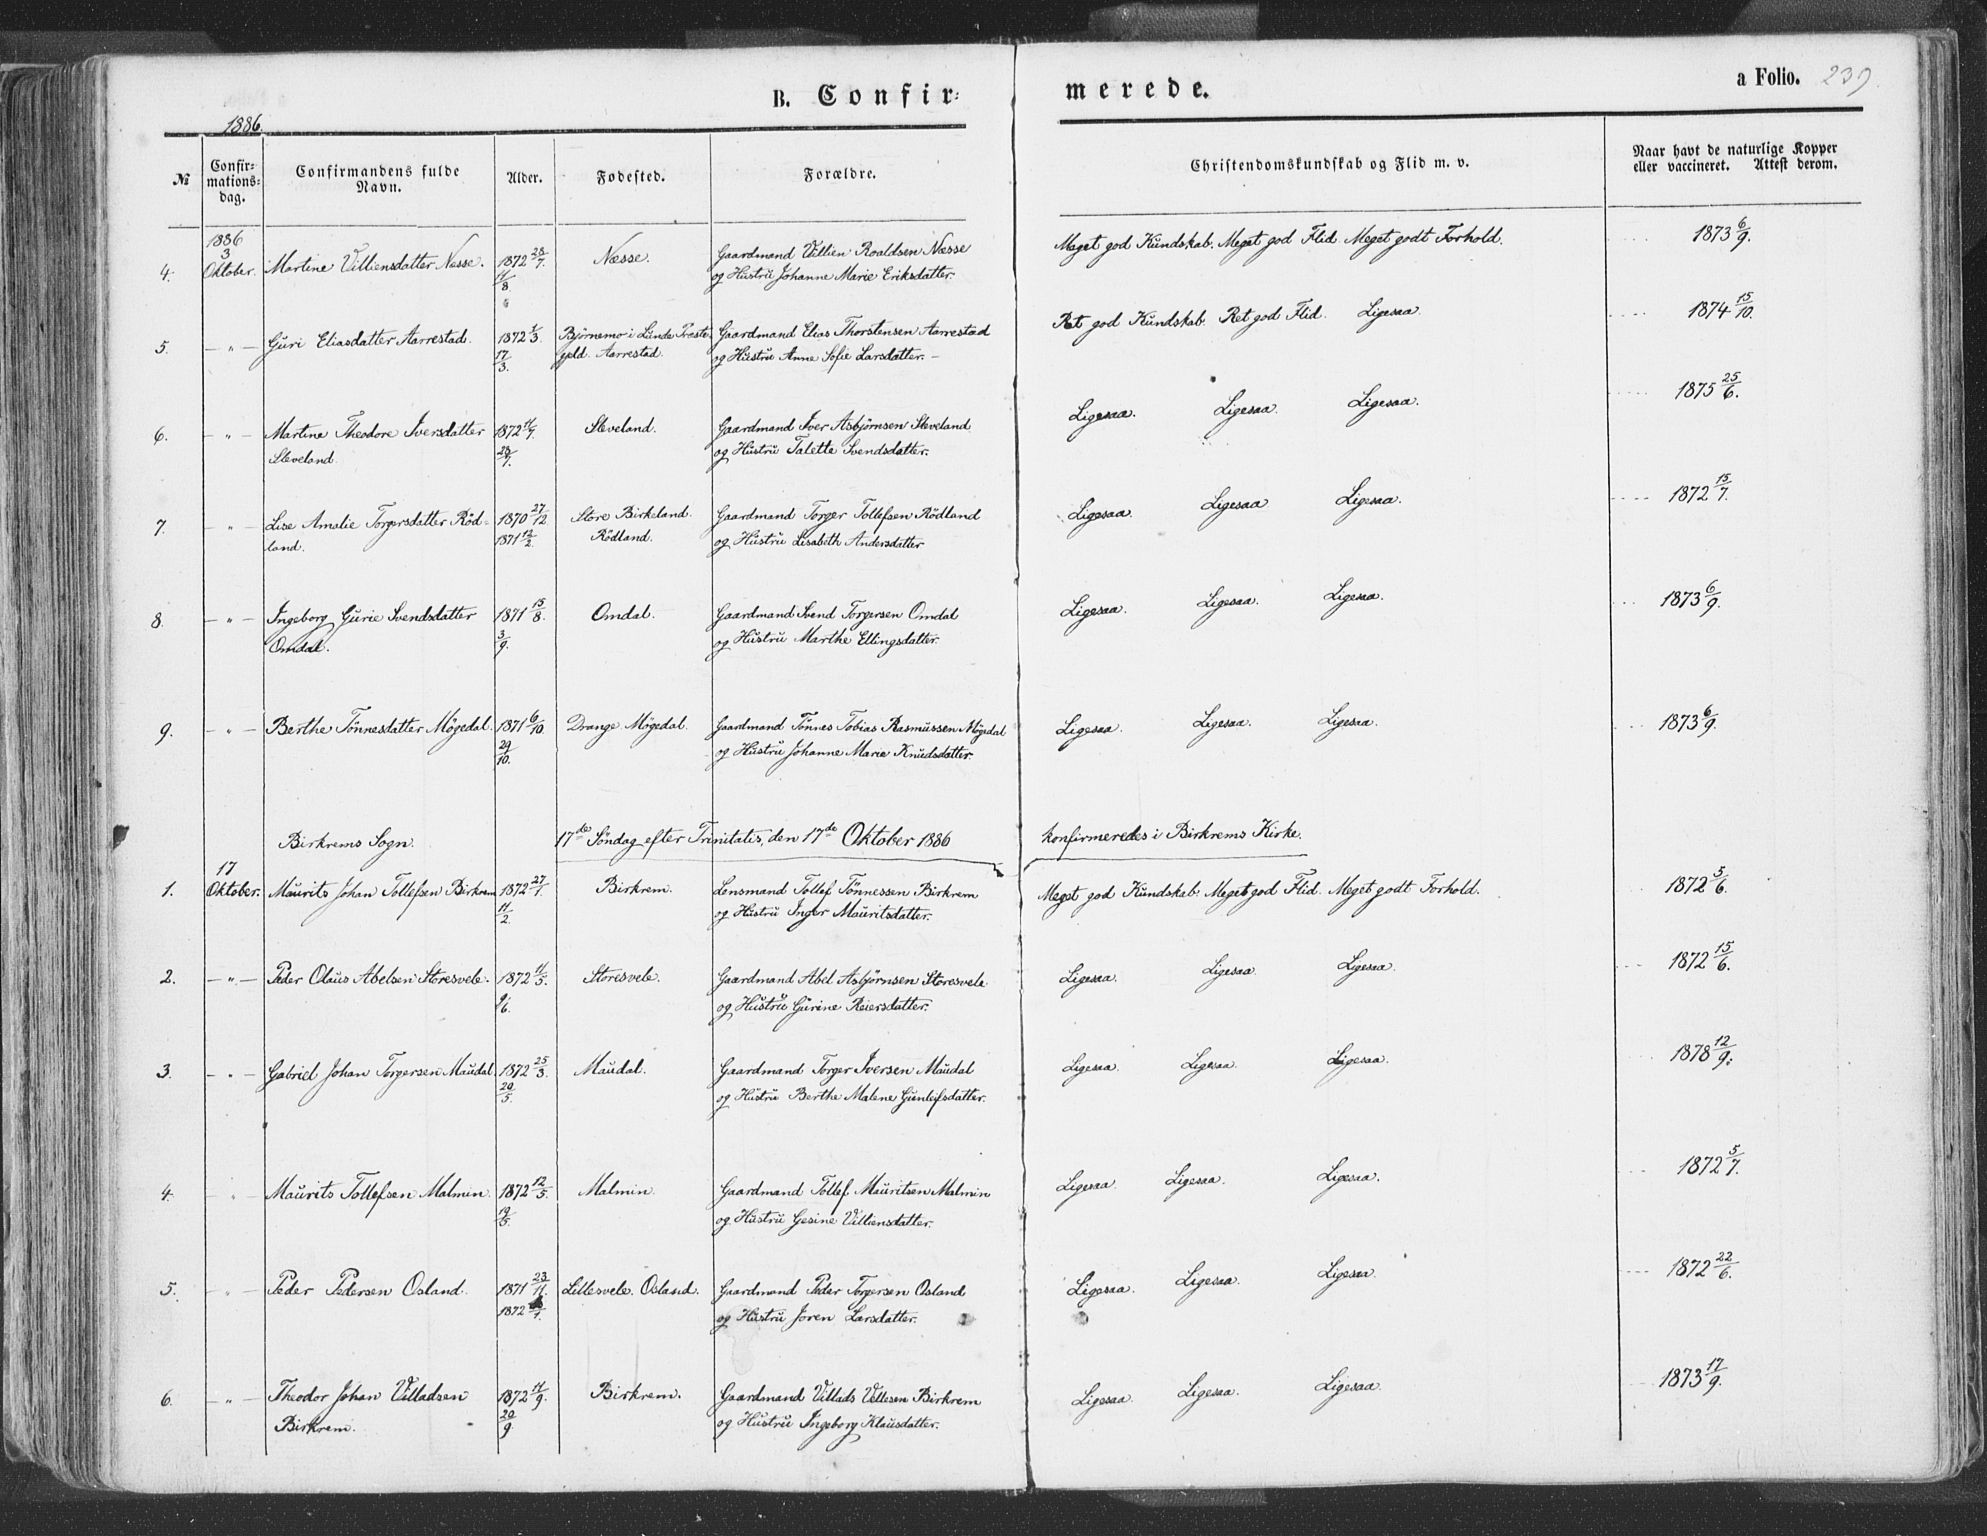 B. Confir=
merede.
a Folio. 239.
1886.
№
Confir=mations=dag.
Confirmandens fulde Navn.
Alder.
Fødested.
Forældre.
Christendomskundskab og Flid m. v.
Naar havt de naturlige Kopper eller vaccineret. Attest derom.
1886
3
4. Oktober. Martine Villiensdatter Næsse. 1872 28/7. Næsse. Gaardmand Villien Roaldsen Næsse Meget god Kundskab. Meget god Flid. Meget godt Forhold. 1873 6/9.
11/8 og Hustru Johanne Marie Eriksdatter.
5. — " — Guri Eliasdatter Aarrestad. 1872 1/3. Bjørnemo i Lunde Præste Gaardmand Elias Thorstensen Aarrestad Ret god Kundskab. Ret god Flid. Ligesaa. 1874 15/10.
17/3. gjeld. Aarrestad. og Hustru Anne Sofie Larsdatter. —
6. — " — Martine Theodore Iversdatter 1872 11/7. Sleveland. Gaardmand Iver Asbjørnsen Sleveland Ligesaa. Ligesaa. Ligesaa. 1875 25/6.
Sleveland. 28/7. og Hustru Talette Svendsdatter.
7. — " — Lise Amalie Torgersdatter Röd= 1870 27/12 Store Birkeland. Gaardmand Torger Tollefsen Rödland Ligesaa. Ligesaa Ligesaa. 1872 15/7.
land. 1871 12/2. Rödland. og Hustru Lisabeth Andersdatter
8. — " — Ingeborg Gurie Svendsdatter 1871 15/8. Omdal. Gaardmand Svend Torgersen Omdal Ligesaa. Ligesaa. Ligesaa. 1873 6/9.
Omdal. 3/9. og Hustru Marthe Ellingsdatter.
9. — " — Berthe Tönnesdatter Mögedal. 1871 6/10. Drange Mögedal. Gaardmand Tönnes Tobias Rasmussen Mögedal Ligesaa. Ligesaa. Ligesaa. 1873 6/9.
29/10. og Hustru Johanne Marie Knudsdatter.
Birkrems Sogn. 17de Söndag efter Trinitatis, den 17de Oktober 1886 konfirmeredes i Birkrems Kirke.
17
1. Oktober. Maurits Johan Tollefsen Birkrem 1872 27/1. Birkrem. Lensmand Tollef Tönnessen Birkrem Meget god Kundskab. Meget god Flid. Meget godt Forhold. 1872 5/6.
11/2. og Hustru Inger Mauritsdatter.
2. — " — Peder Olaus Abelsen Storesvele. 1872 11/5. Storesvele. Gaardmand Abel Asbjørnsen Storesvele Ligesaa. Ligesaa. Ligesaa. 1872 15/6.
9/6. og Hustru Gurine Reiersdatter.
3. — " — Gabriel Johan Torgersen Maudal. 1872 25/3. Maudal. Gaardmand Torger Iversen Maudal Ligesaa. Ligesaa. Ligesaa. 1878 12/9.
20/5. og Hustru Berthe Malene Gunleifsdatter.
4. " Maurits Tollefsen Malmin. 1872 12/5. Malmin. Gaardmand Tollef Mauritsen Malmin Ligesaa. Ligesaa. Ligesaa. 1872 5/7.
19/5. og Hustru Gesine Villiensdatter.
5. — " — Peder Pedersen Osland. 1871 23/11. Lillesvele. Osland. Gaardmand Peder Torgersen Osland Ligesaa. Ligesaa. Ligesaa. 1872 22/6.
1872 og Hustru Joren Larsdatter.
6. — " — Theodor Johan Villadsen 1872 11/9. Birkrem. Gaardmand Villads Vellesen Birkrem Ligesaa. Ligesaa. Ligesaa. 1873 17/9.
Birkrem. 20/9. og Hustru Ingeborg Klausdatter.